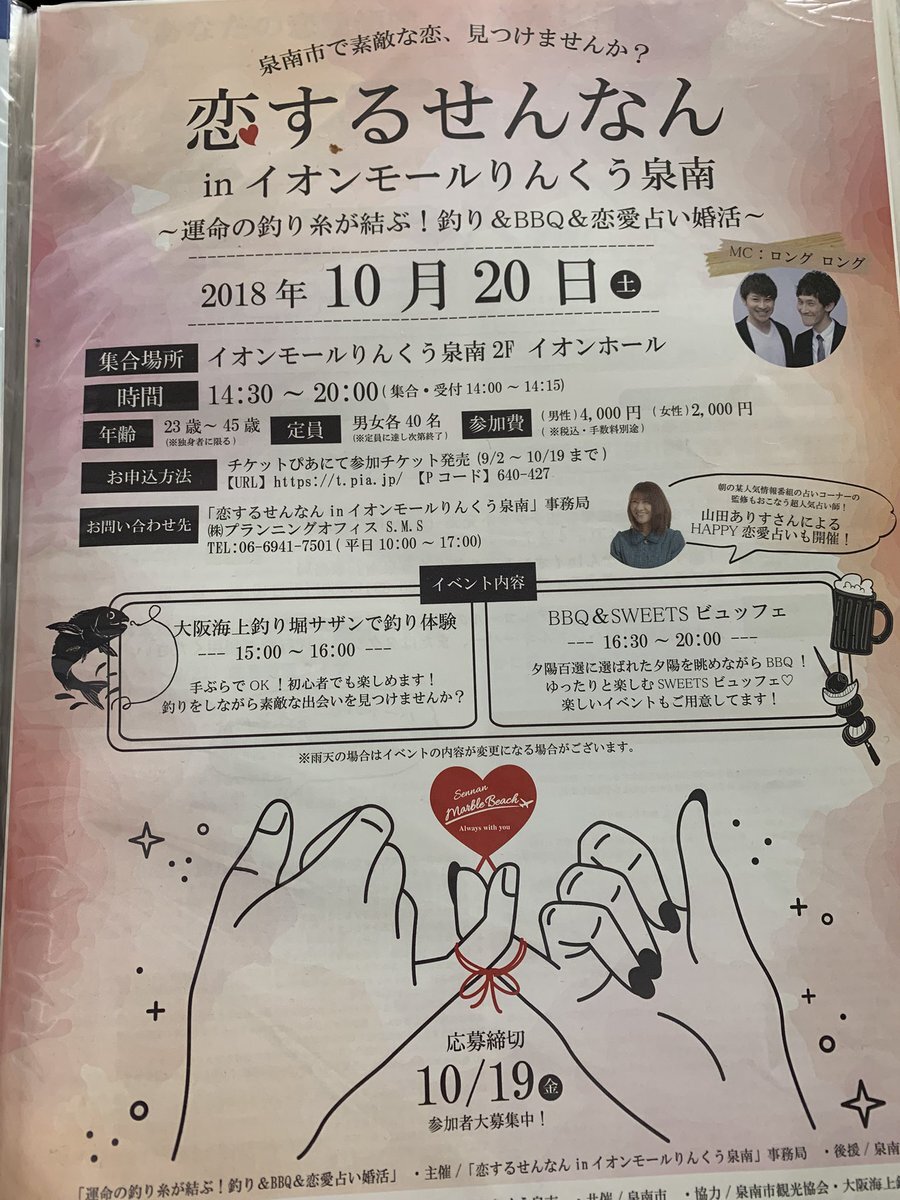 泉南市で素敵な恋、見つけませんか？
恋するせんなん
in イオンモールりんくう泉南
～運命の釣り糸が結ぶ！釣り＆BBQ＆恋愛占い婚活～
2018年 10月20日 土
MC：ロング ロング
集合場所 イオンモールりんくう泉南2F イオンホール
時間 14:30 ～ 20:00 (集合・受付 14:00 ～ 14:15)
年齢 23歳～45歳 (※独身者に限る) 定員 男女各40名 (※定員に達し次第終了) 参加費 (男性) 4,000円 (女性) 2,000円 (※税込・手数料別途)
お申込方法 チケットぴあにて参加チケット発売 (9/2 ～ 10/19 まで)
【URL】https://t.pia.jp/ 【Pコード】640-427
お問い合わせ先 「恋するせんなん in イオンモールりんくう泉南」事務局
㈱プランニングオフィス S.M.S
TEL:06-6941-7501 (平日 10:00 ～ 17:00)
朝の某人気情報番組の占いコーナーの
監修もおこなう超人気占い師！
山田ありすさんによる
HAPPY 恋愛占いも開催！
イベント内容
大阪海上釣り堀サザンで釣り体験
--- 15:00 ～ 16:00 ---
手ぶらでOK！初心者でも楽しめます！
釣りをしながら素敵な出会いを見つけませんか？
BBQ＆SWEETS ビュッフェ
--- 16:30 ～ 20:00 ---
夕陽百選に選ばれた夕陽を眺めながらBBQ！
ゆったりと楽しむSWEETS ビュッフェ♡
楽しいイベントもご用意してます！
※雨天の場合はイベントの内容が変更になる場合がございます。
Sennan
Marble Beach
Always with you
応募締切
10/19 金
参加者大募集中！
「運命の釣り糸が結ぶ！釣り＆BBQ＆恋愛占い婚活」 ・主催 /「恋するせんなん in イオンモールりんくう泉南」事務局 ・後援 / 泉南
くう泉南 ・共催 / 泉南市 ・協力 / 泉南市観光協会・大阪海上釣